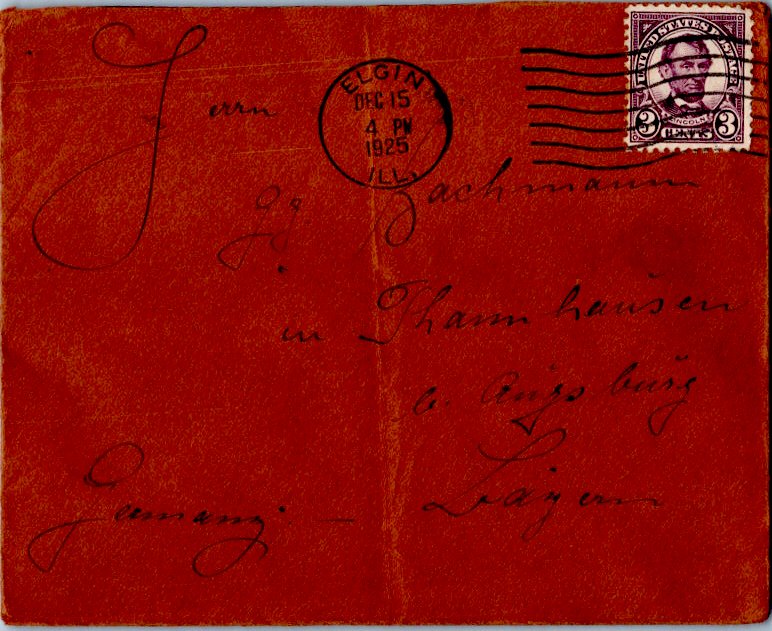 ELGIN
DEC 15
4 PM
1925
ILL.
UNITED STATES POSTAGE
LINCOLN
3 CENTS 3
Herrn
Bachmann
in Thannhausen
b. Augsburg
Bayern
Germany. —